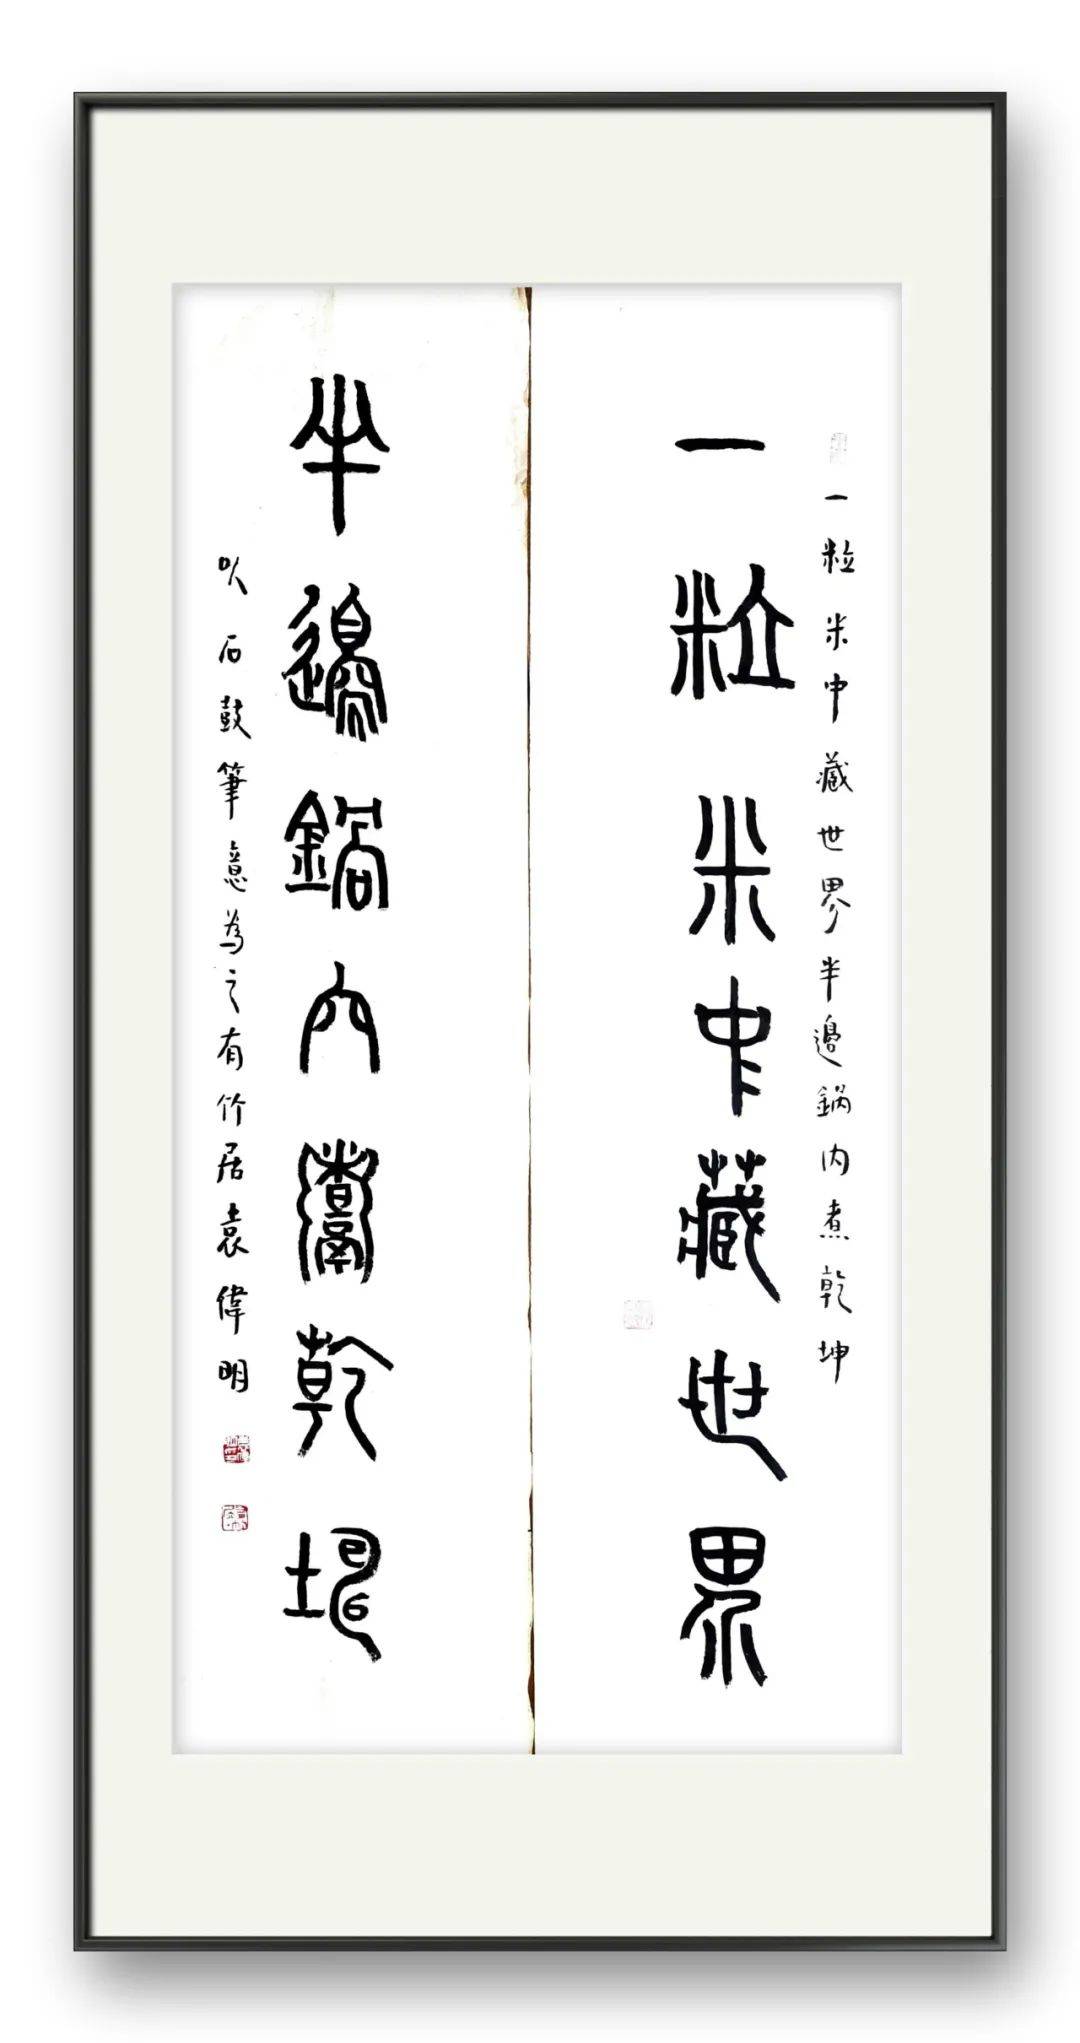 一粒米中藏世界半邊鍋内煮乾坤
一粒米中藏世界
半邊鍋内煮乾坤
以石鼓筆意為之有竹居袁偉明